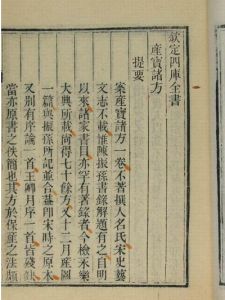 欽定四庫全書
產寶諸方
提要
案產寶諸方一卷不著撰人名氏宋史藝
文志不載惟陳振孫書錄解題有之自明
以來諸家書目亦罕有著錄者今檢永樂
大典所載尚得七十餘方又十二月產圖
一篇與振孫所記並合葢即宋時之原本
又別有序論一首王卿月序一首皆殘缺
當亦原書之佚簡也其方於保產之法頗